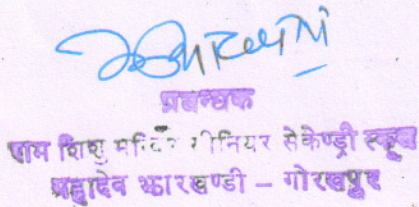 प्रबन्धक
राम शिशु मन्दिर सीनियर सेकेण्ड्री स्कूल
महादेव झारखण्डी – गोरखपुर